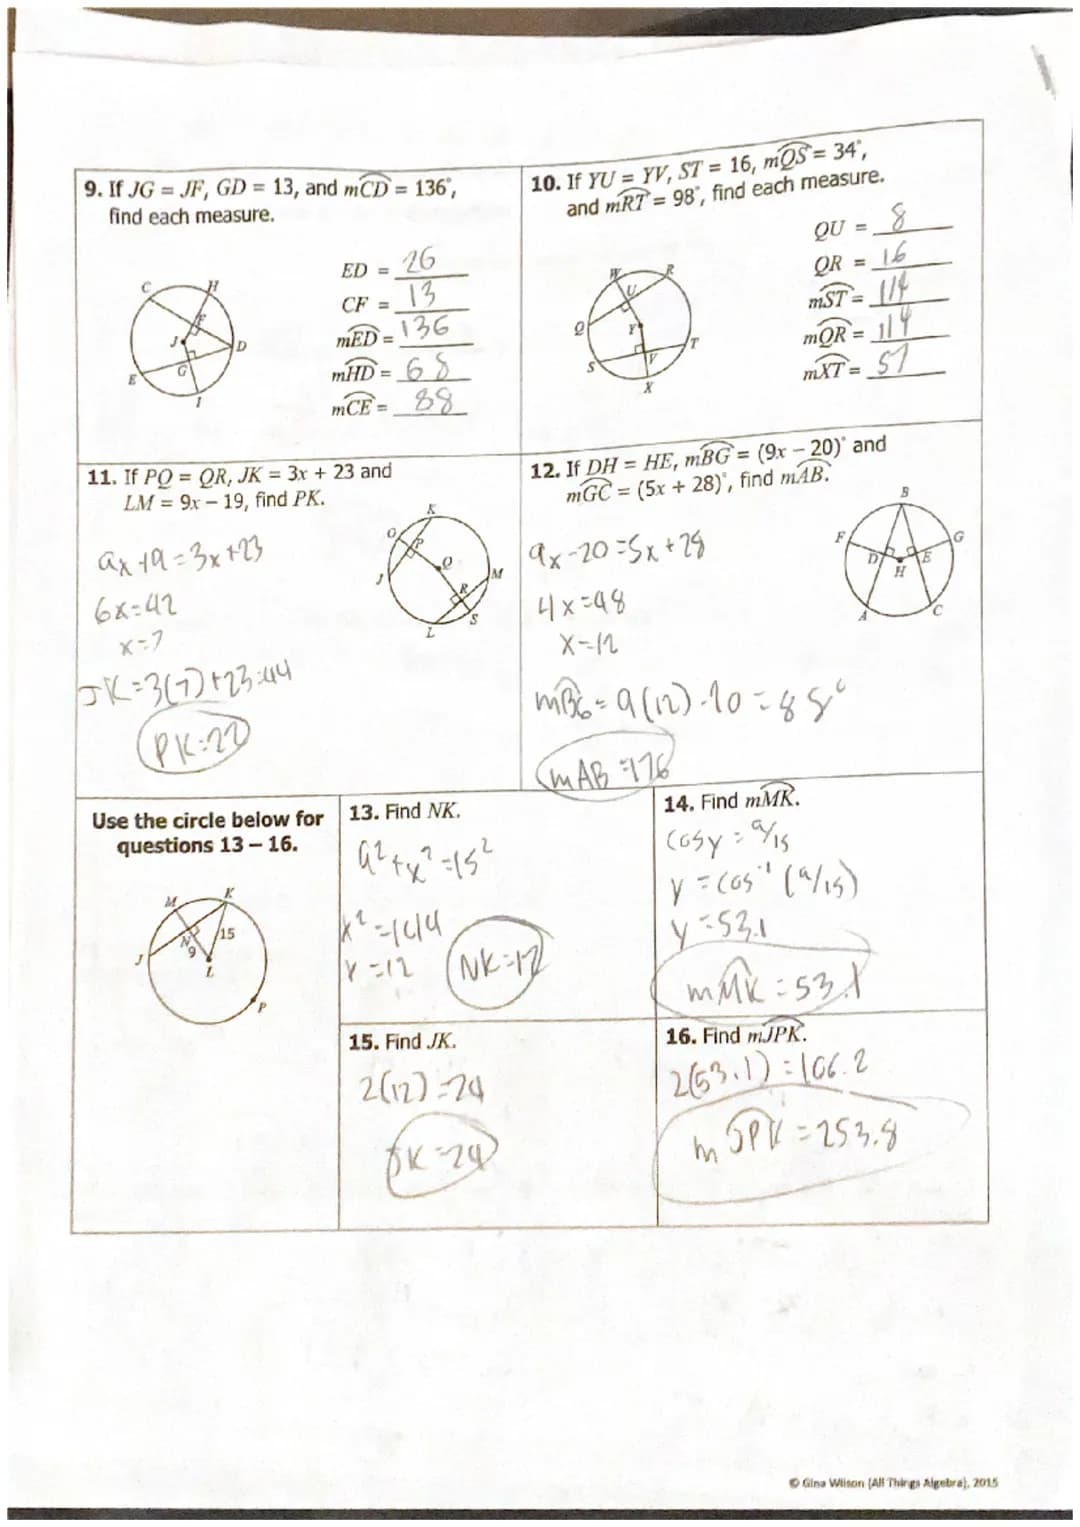 9. If JG = JF, GD = 13, and mCD = 136°,
find each measure.
ED = 26
CF = 13
mED = 136
mHD = 68
mCE = 88
C
H
F
J
D
G
E
I
10. If YU = YV, ST = 16, mQS = 34°,
and mRT = 98°, find each measure.
QU = 8
QR = 16
mST = 114
mQR = 114
mXT = 57
W
R
U
Q
Y
T
S
V
X
11. If PQ = QR, JK = 3x + 23 and
LM = 9x – 19, find PK.
9x +9 = 3x +23
6x=42
x=7
JK=3(7)+23=44
PK=22
K
O
P
Q
J
M
R
L
S
12. If DH = HE, mBG = (9x – 20)° and
mGC = (5x + 28)°, find mAB.
9x-20=5x+28
4x=48
x=12
mBG = 9(12)-20 = 88°
mAB = 176
B
F
G
D
E
H
A
C
Use the circle below for
questions 13 – 16.
M
K
15
N
9
J
L
P
13. Find NK.
9²+x²=15²
x²=144
x=12
NK=12
14. Find mMK.
cosy = 9/15
y = cos⁻¹ (9/15)
y=53.1
mMK = 53.1
15. Find JK.
2(12)=24
JK=24
16. Find mJPK.
2(53.1) = 106.2
m JPK = 253.8
© Gina Wilson (All Things Algebra), 2015